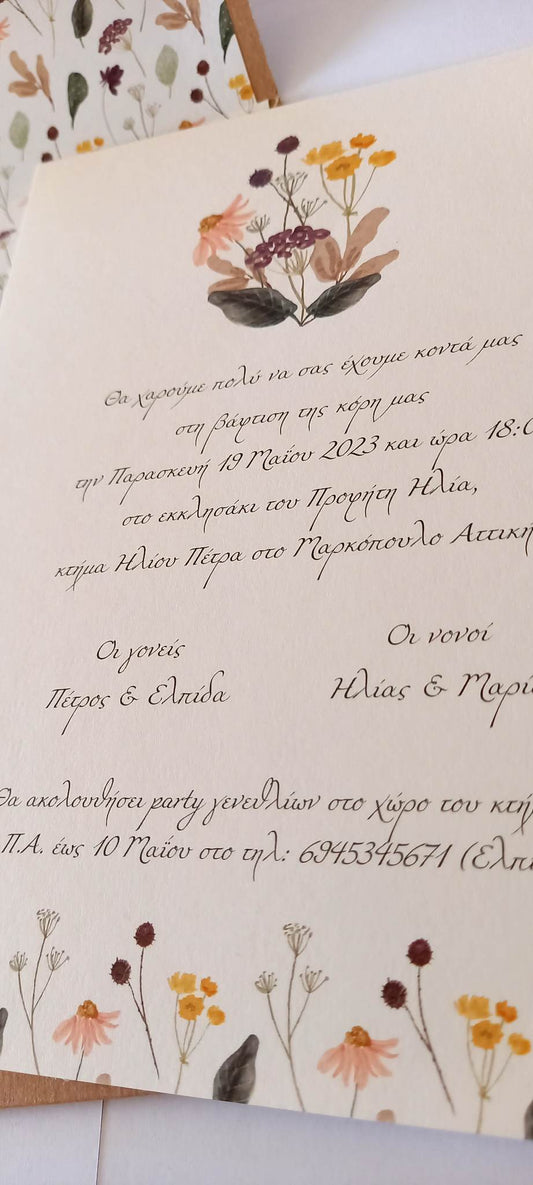 Θα χαρούμε πολύ να σας έχουμε κοντά μας
στη βάφτιση της κόρη μας
την Παρασκευή 19 Μαΐου 2023 και ώρα 18:0
στο εκκλησάκι του Προφήτη Ηλία,
κτήμα Ηλίου Πέτρα στο Μαρκόπουλο Αττική
Οι γονείς
Πέτρος & Ελπίδα
Οι νονοί
Ηλίας & Μαρί
Θα ακολουθήσει party γενεθλίων στο χώρο του κτή
Π.Α. έως 10 Μαΐου στο τηλ: 6945345671 (Ελπ